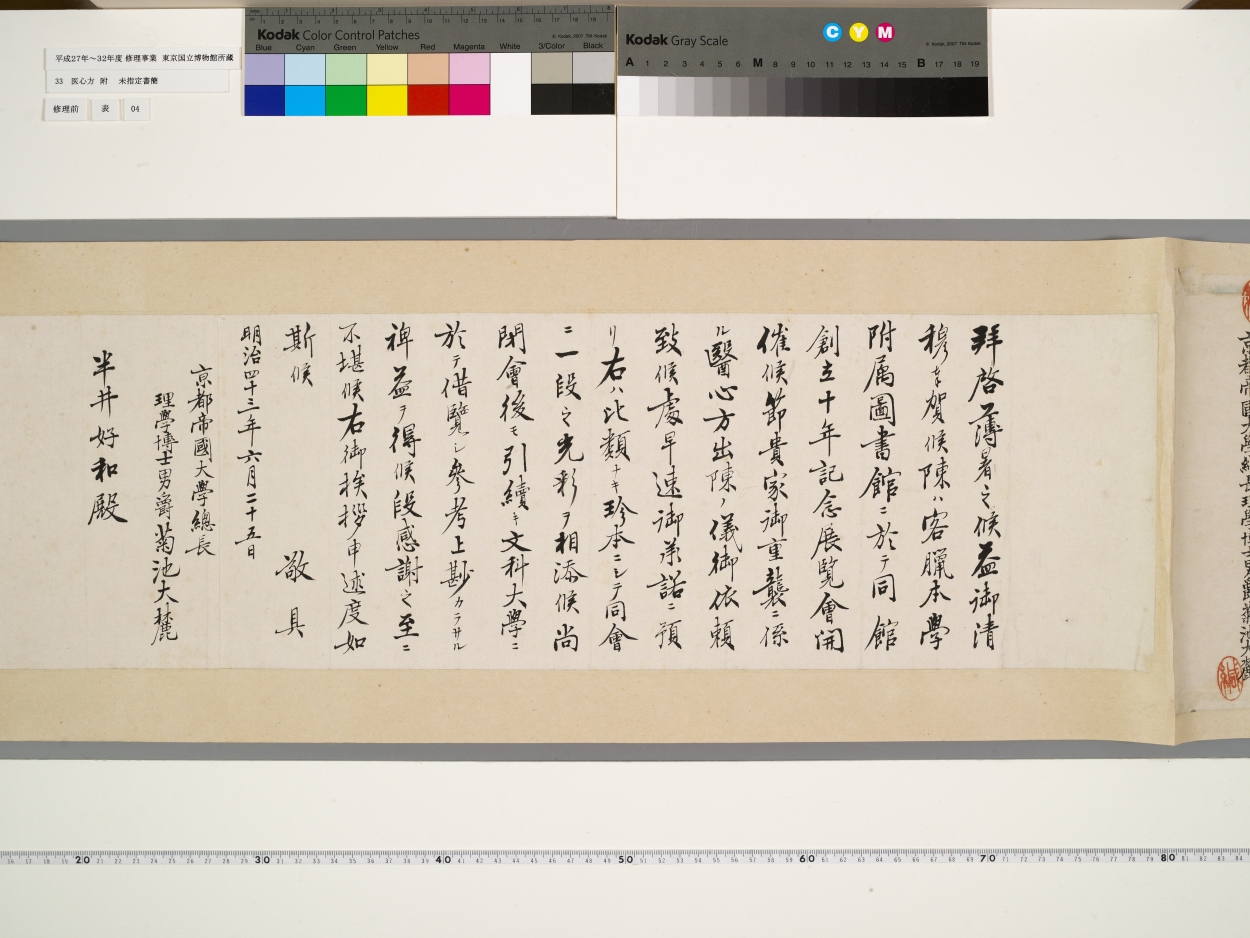 平成27年～32年度 修理事業 東京国立博物館所蔵
33 医心方 附 未指定書簡
修理前 表 04
Kodak Color Control Patches
Blue Cyan Green Yellow Red Magenta White 3/Color Black
Kodak Gray Scale
C Y M
A 1 2 3 4 5 6 M 8 9 10 11 12 13 14 15 B 17 18 19
拜啓薄暑之候益御清
穆奉賀候陳ハ客臘本學
附属圖書館ニ於テ同館
創立十年記念展覧會開
催候節貴家御重襲ニ係
ル醫心方出陳ノ儀御依頼
致候處早速御承諾ニ預
リ右ハ比類ナキ珍本ニシテ同會
ニ一段之光彩ヲ相添候尚
閉會後モ引續キ文科大學ニ
於テ借覧シ參考上尠カラサル
裨益ヲ得候段感謝之至ニ
不堪候右御挨拶申述度如
斯候 敬具
明治四十三年六月二十五日
京都帝國大學總長
理學博士男爵菊池大麓
半井好和殿
京都帝國大學總長理學博士男爵菊池大麓
緘
20 30 40 50 60 70 80